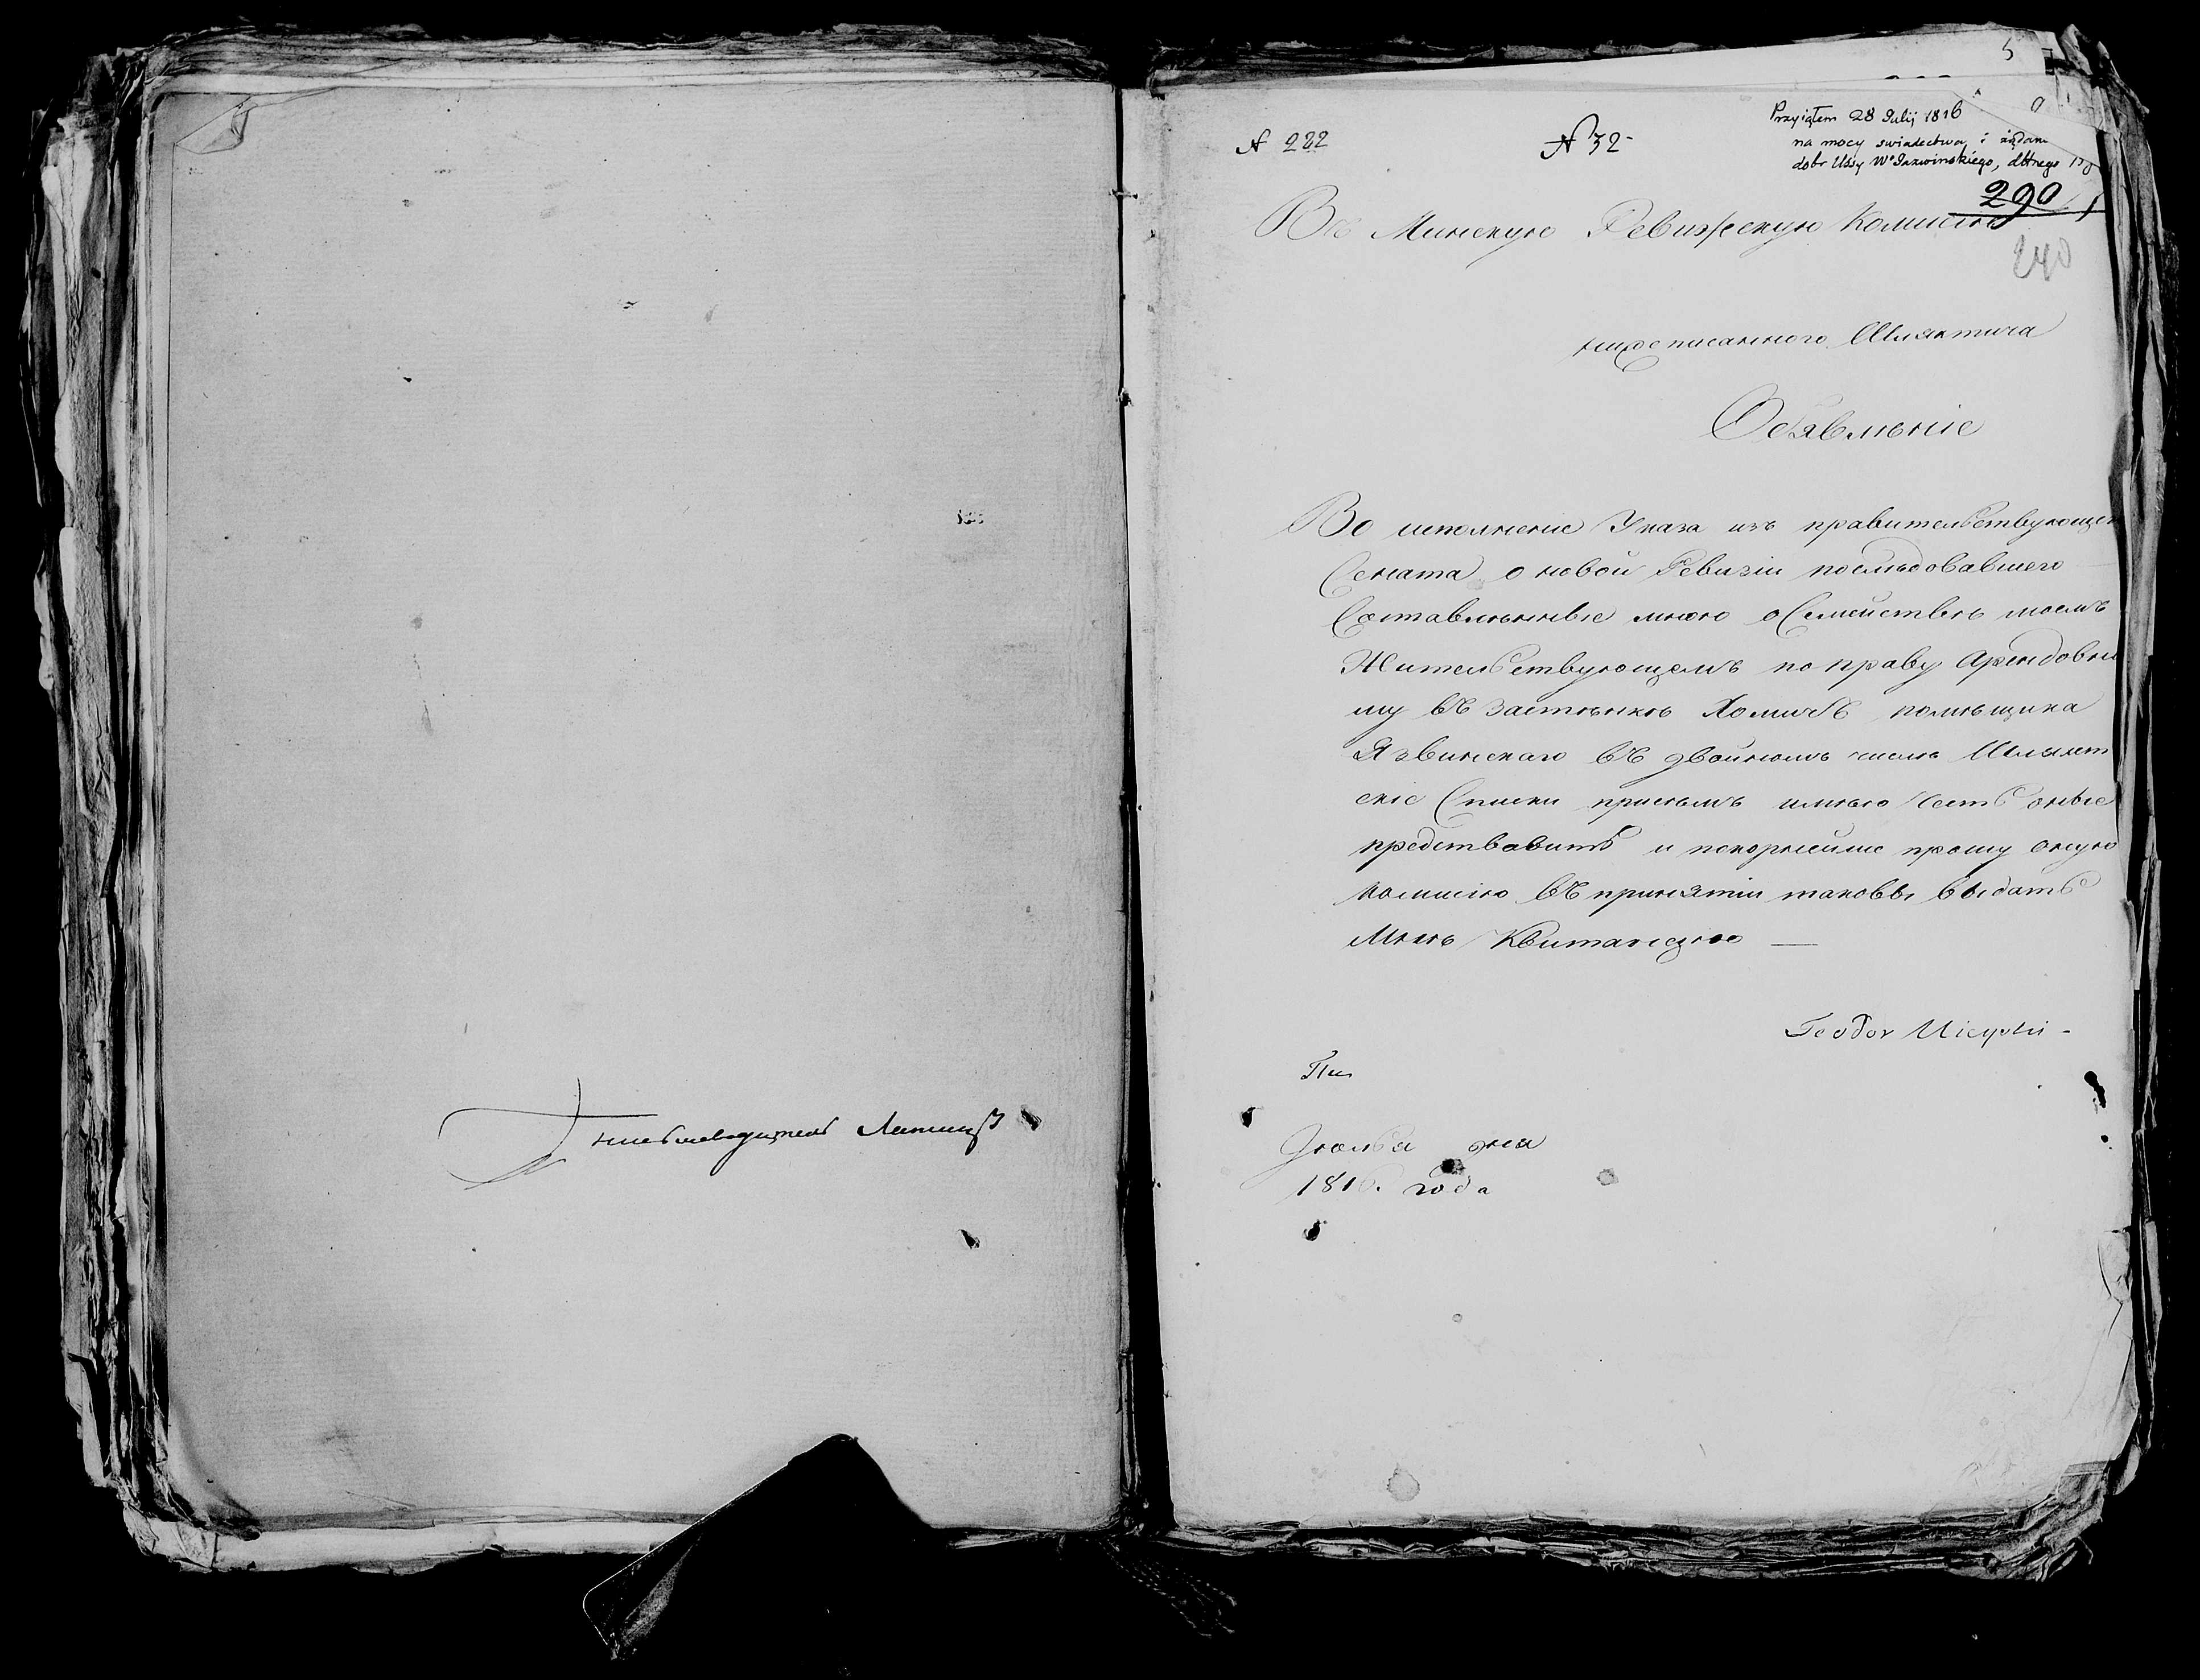 5
№ 222
№ 32-
Przyiąłem 28 Julij 1816
na mocy swiadectwa i żądan
dobr Ussy Wº Jazwinskiego,
290
240
Въ Минскую Ревизскую Комисію
нижеписанного Шляхтича
Обявленіе
Во исполненіе Указа изъ правительствующ
Сената о новой Ревизіи последовавшего
Составленные мною о Семействе моемъ
Жительствующемъ по праву Арендовно
му въ Застенке Хомичъ помещика
Язвинскаго въ двойномъ числе Шляхет
скіе Списки присемъ имею честь оные
представить и покорнейше прошу оную
комисію въ принятіи таковы выдать
Мне Квитанцію —
Teodor
Іюля дня
1816. года